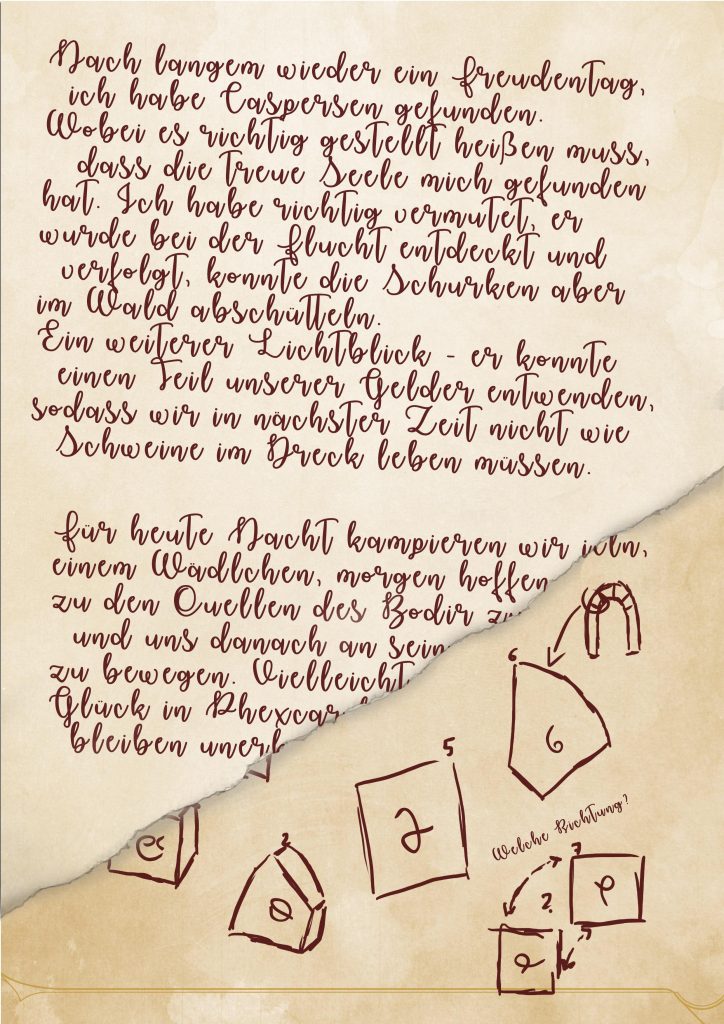 Nach langem wieder ein Freudentag,
ich habe Caspersen gefunden.
Wobei es richtig gestellt heißen muss,
dass die treue Seele mich gefunden
hat. Ich habe richtig vermutet, er
wurde bei der Flucht entdeckt und
verfolgt, konnte die Schurken aber
im Wald abschütteln.
Ein weiterer Lichtblick - er konnte
einen Teil unserer Gelder entwenden,
sodass wir in nächster Zeit nicht wie
Schweine im Dreck leben müssen.
Für heute Nacht kampieren wir
einem Wädlchen, morgen hoffen
zu den Quellen des Bodir
und uns danach an
zu bewegen. Vielleicht
Glück in
bleiben
6
6
5
2
Welche Richtung?
7
?